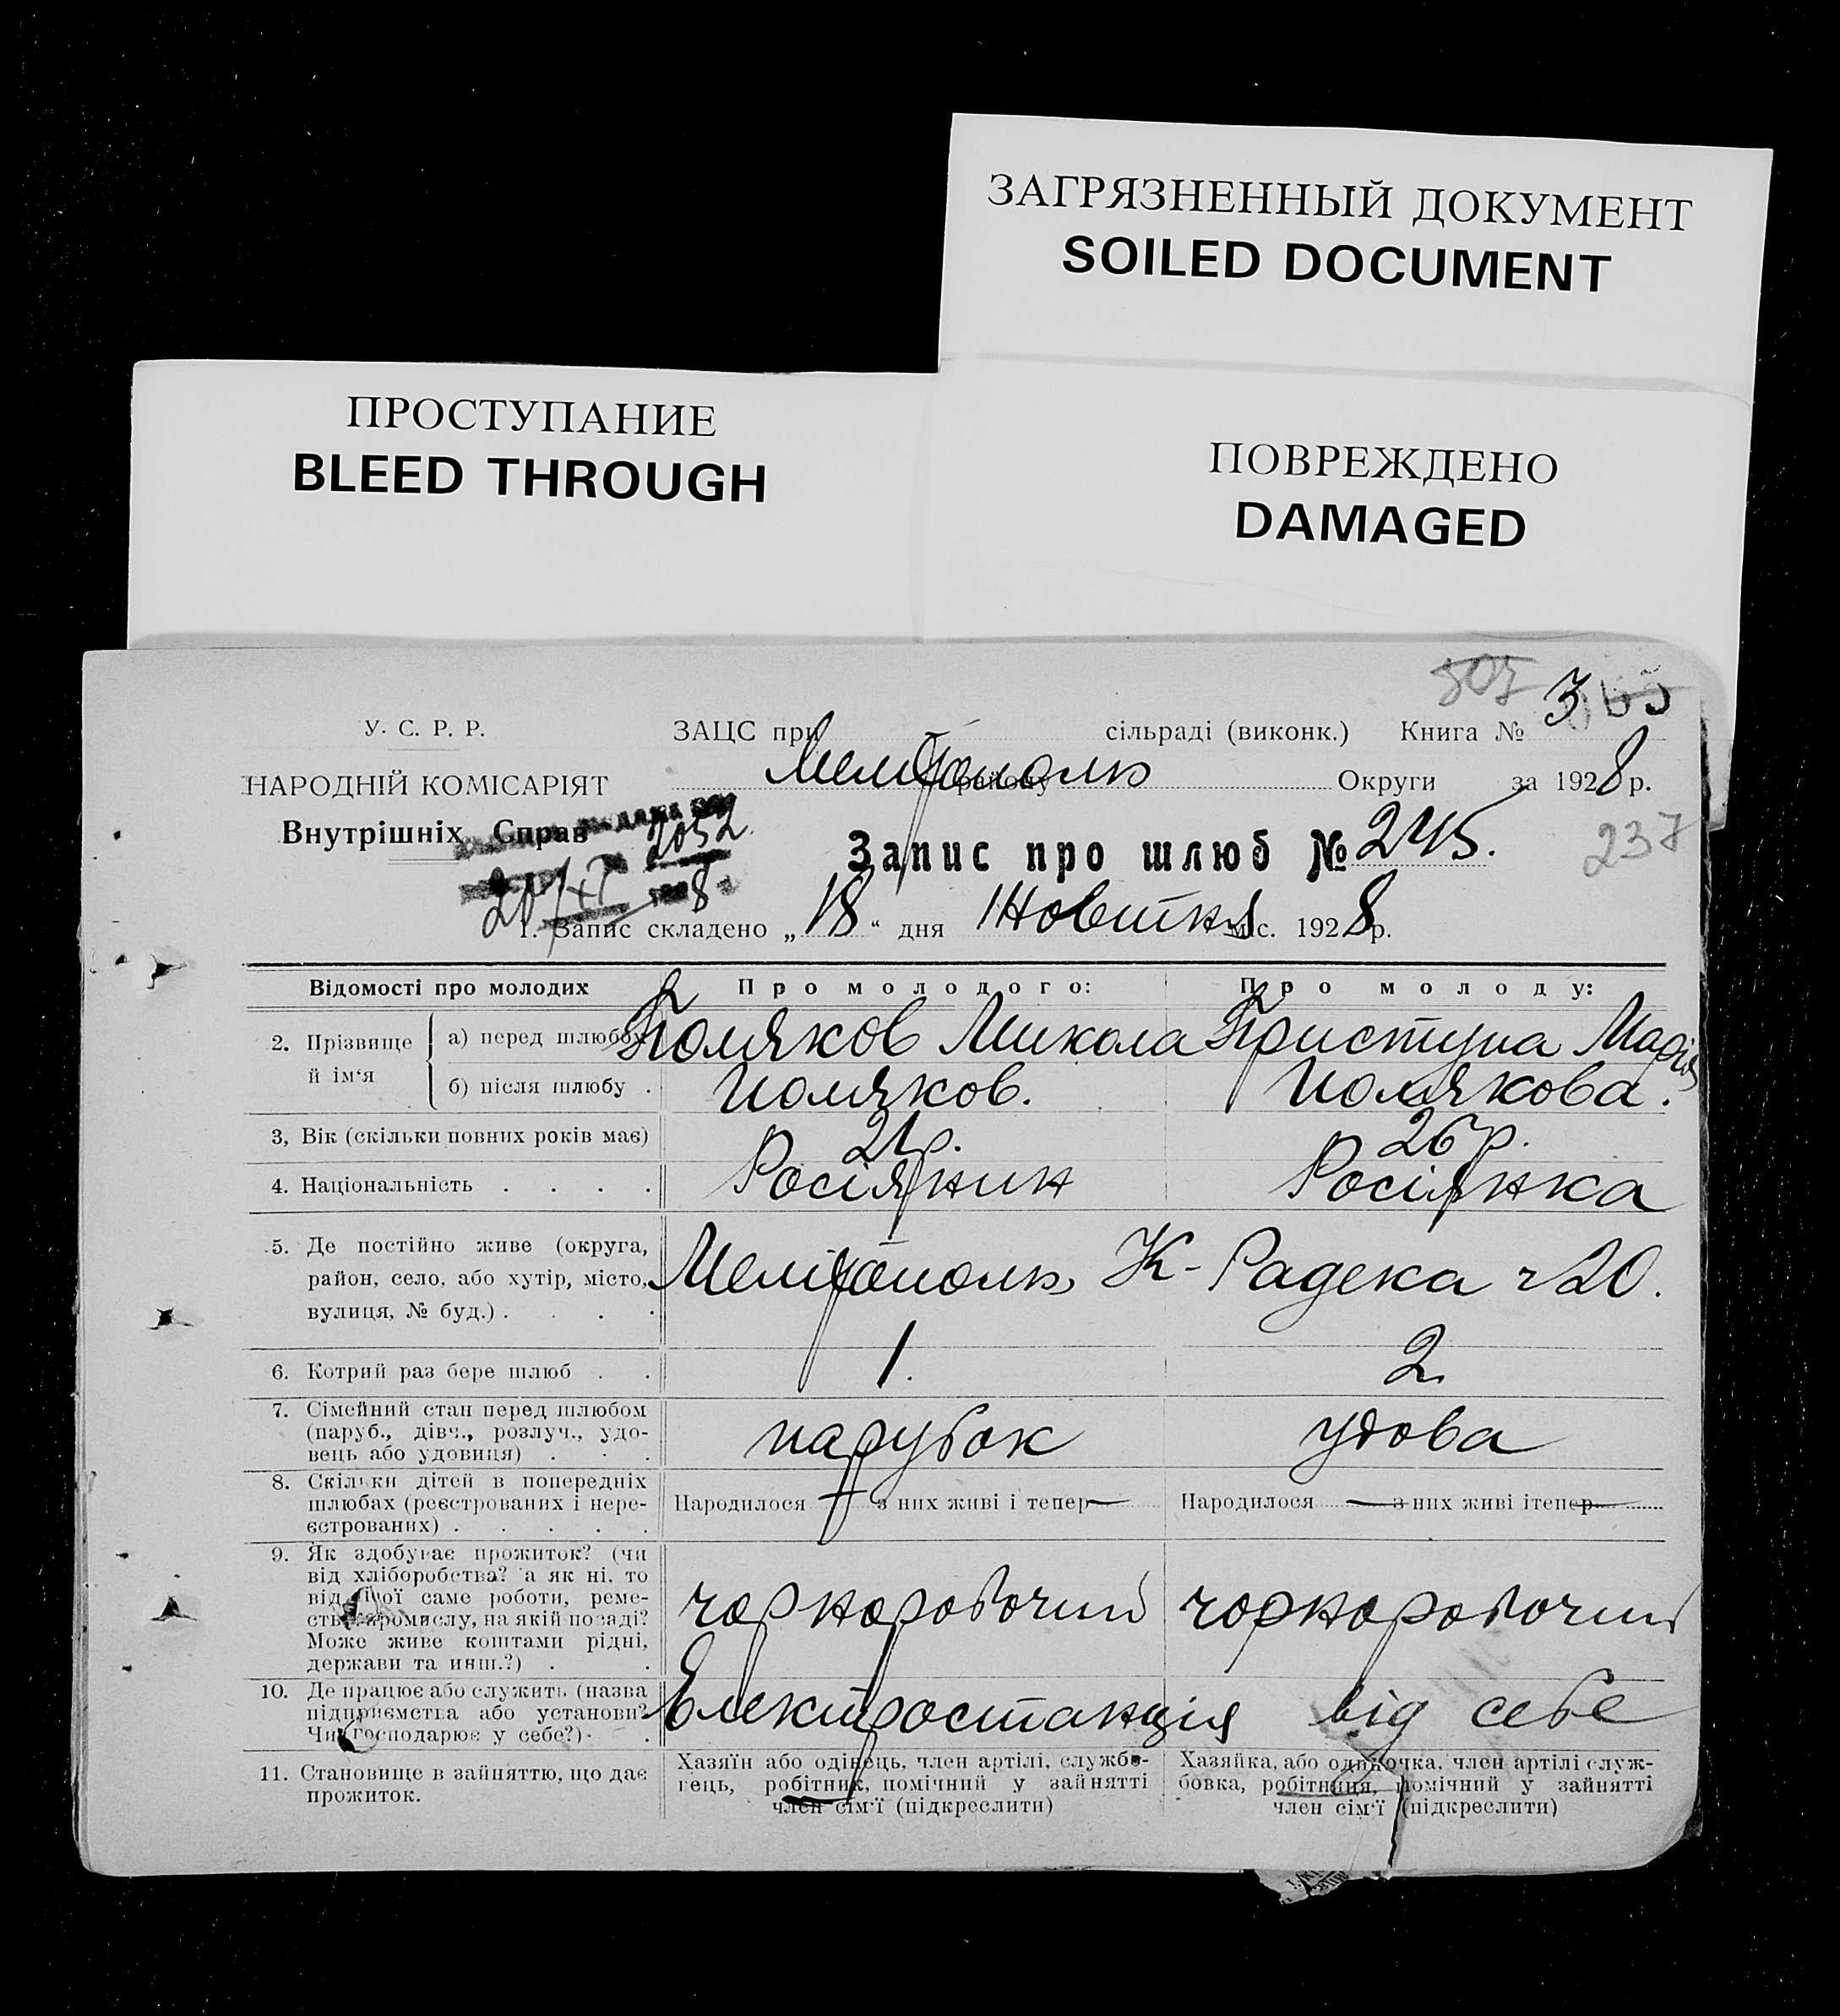 ЗАГРЯЗНЕННЫЙ ДОКУМЕНТ
SOILED DOCUMENT
ПРОСТУПАНИЕ
BLEED THROUGH
ПОВРЕЖДЕНО
DAMAGED
У. С. Р. Р.
НАРОДНІЙ КОМІСАРІЯТ
Внутрішніх Справ
2052
20/XI 8
807
ЗАЦС при сільраді (виконк.) Книга № 3
Мелітополь району Округи за 1928 р.
Запис про шлюб № 245.
237
1. Запис складено „18“ дня Жовтня міс. 1928 р.
Відомості про молодих Про молодого: Про молоду:
2. Прізвище й ім‘я а) перед шлюбом Поляков Микола Приступа Марія
б) після шлюбу . Поляков. Полякова.
3, Вік (скільки повних років має) 21 р. 26 р.
4. Національність . . . . Росіянин Росіянка
5. Де постійно живе (округа,
район, село, або хутір, місто, Мелітополь, К-Радека ч 20.
вулиця, № буд.) . . . .
6. Котрий раз бере шлюб . . 1. 2
7. Сімейний стан перед шлюбом
(паруб., дівч., розлуч., удо- парубок удова
вець або удовиця) . . .
8. Скільки дітей в попередніх
шлюбах (реєстрованих і нере- Народилося — з них живі і тепер — Народилося — з них живі ітепер —
єстрованих) . . . . .
9. Як здобуває прожиток? (чи
від хліборобства? а як ні, то
від якої саме роботи, реме-
ства, промислу, на якій посаді? чорноробочий чорноробочий
Може живе коштами рідні,
держави та инш.?) . .
10. Де працює або служить (назва
підприємства або установи? Електростанція від себе
Чи господарює у себе?) . .
11. Становище в зайняттю, що дає
прожиток.
Хазяїн або одінець, член артілі, службо-
вець, робітник, помічний у зайнятті
член сім‘ї (підкреслити)
Хазяйка, або одиночка, член артілі служ-
бовка, робітниця, помічний у зайнятті
член сім‘ї (підкреслити)